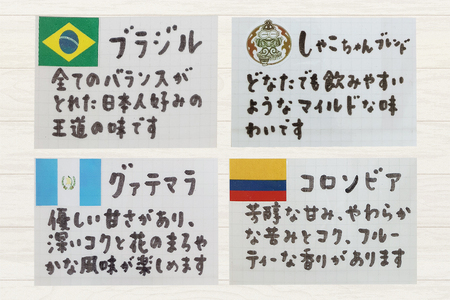 ブラジル
全てのバランスが
とれた日本人好みの
王道の味です
しゃこちゃんブレンド
どなたでも飲みやすい
ようなマイルドな味
わいです
グァテマラ
優しい甘さがあり、
深いコクと花のまろや
かな風味が楽しめます
コロンビア
芳醇な甘み、やわらか
な苦みとコク、フルー
ティーな香りがあります